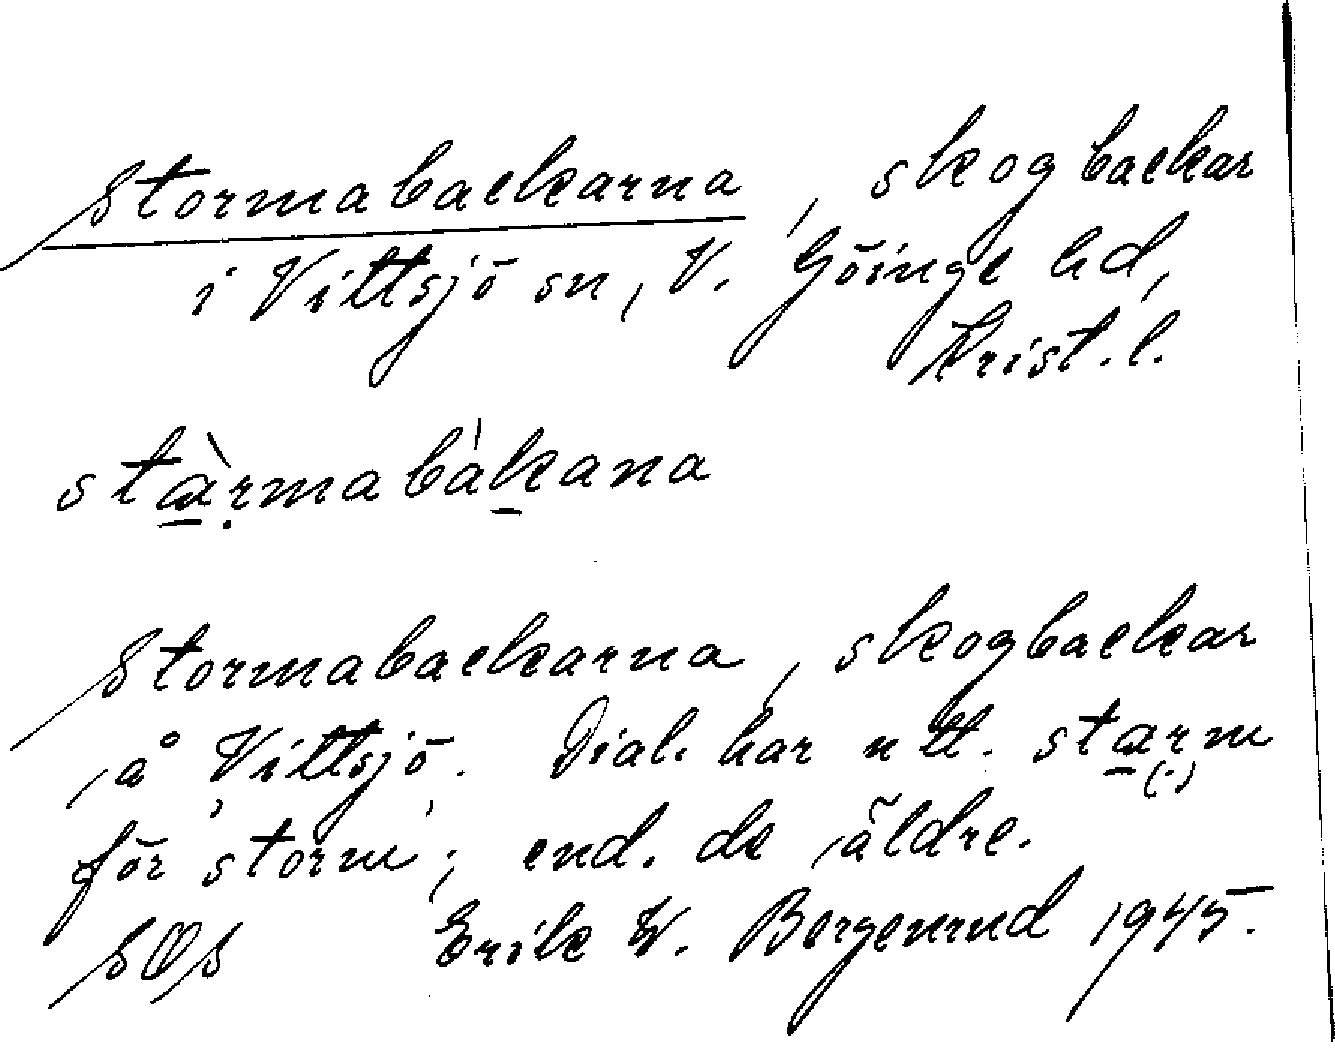 Stormabackarna, skogbackar
i Vittsjö sn, V. Göinge hd,
Krist. l.
stàrmabákana
Stormabackarna, skogbackar
å Vittsjö. Dial. har utt. starm
för 'storm'; end. de äldre.
SOS Erik W. Bergenrud 1945.